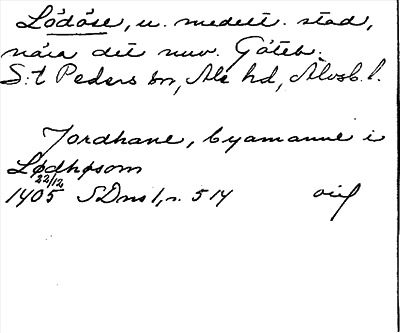 Lödöse, u. medelt. stad,
nära det nuv. Göteb.
S:t Peders sn, Ale hd, Älvsb. l.
Jordhane, byamanne i
Lødhøsom
22/12
1405 SDns 1, s. 514